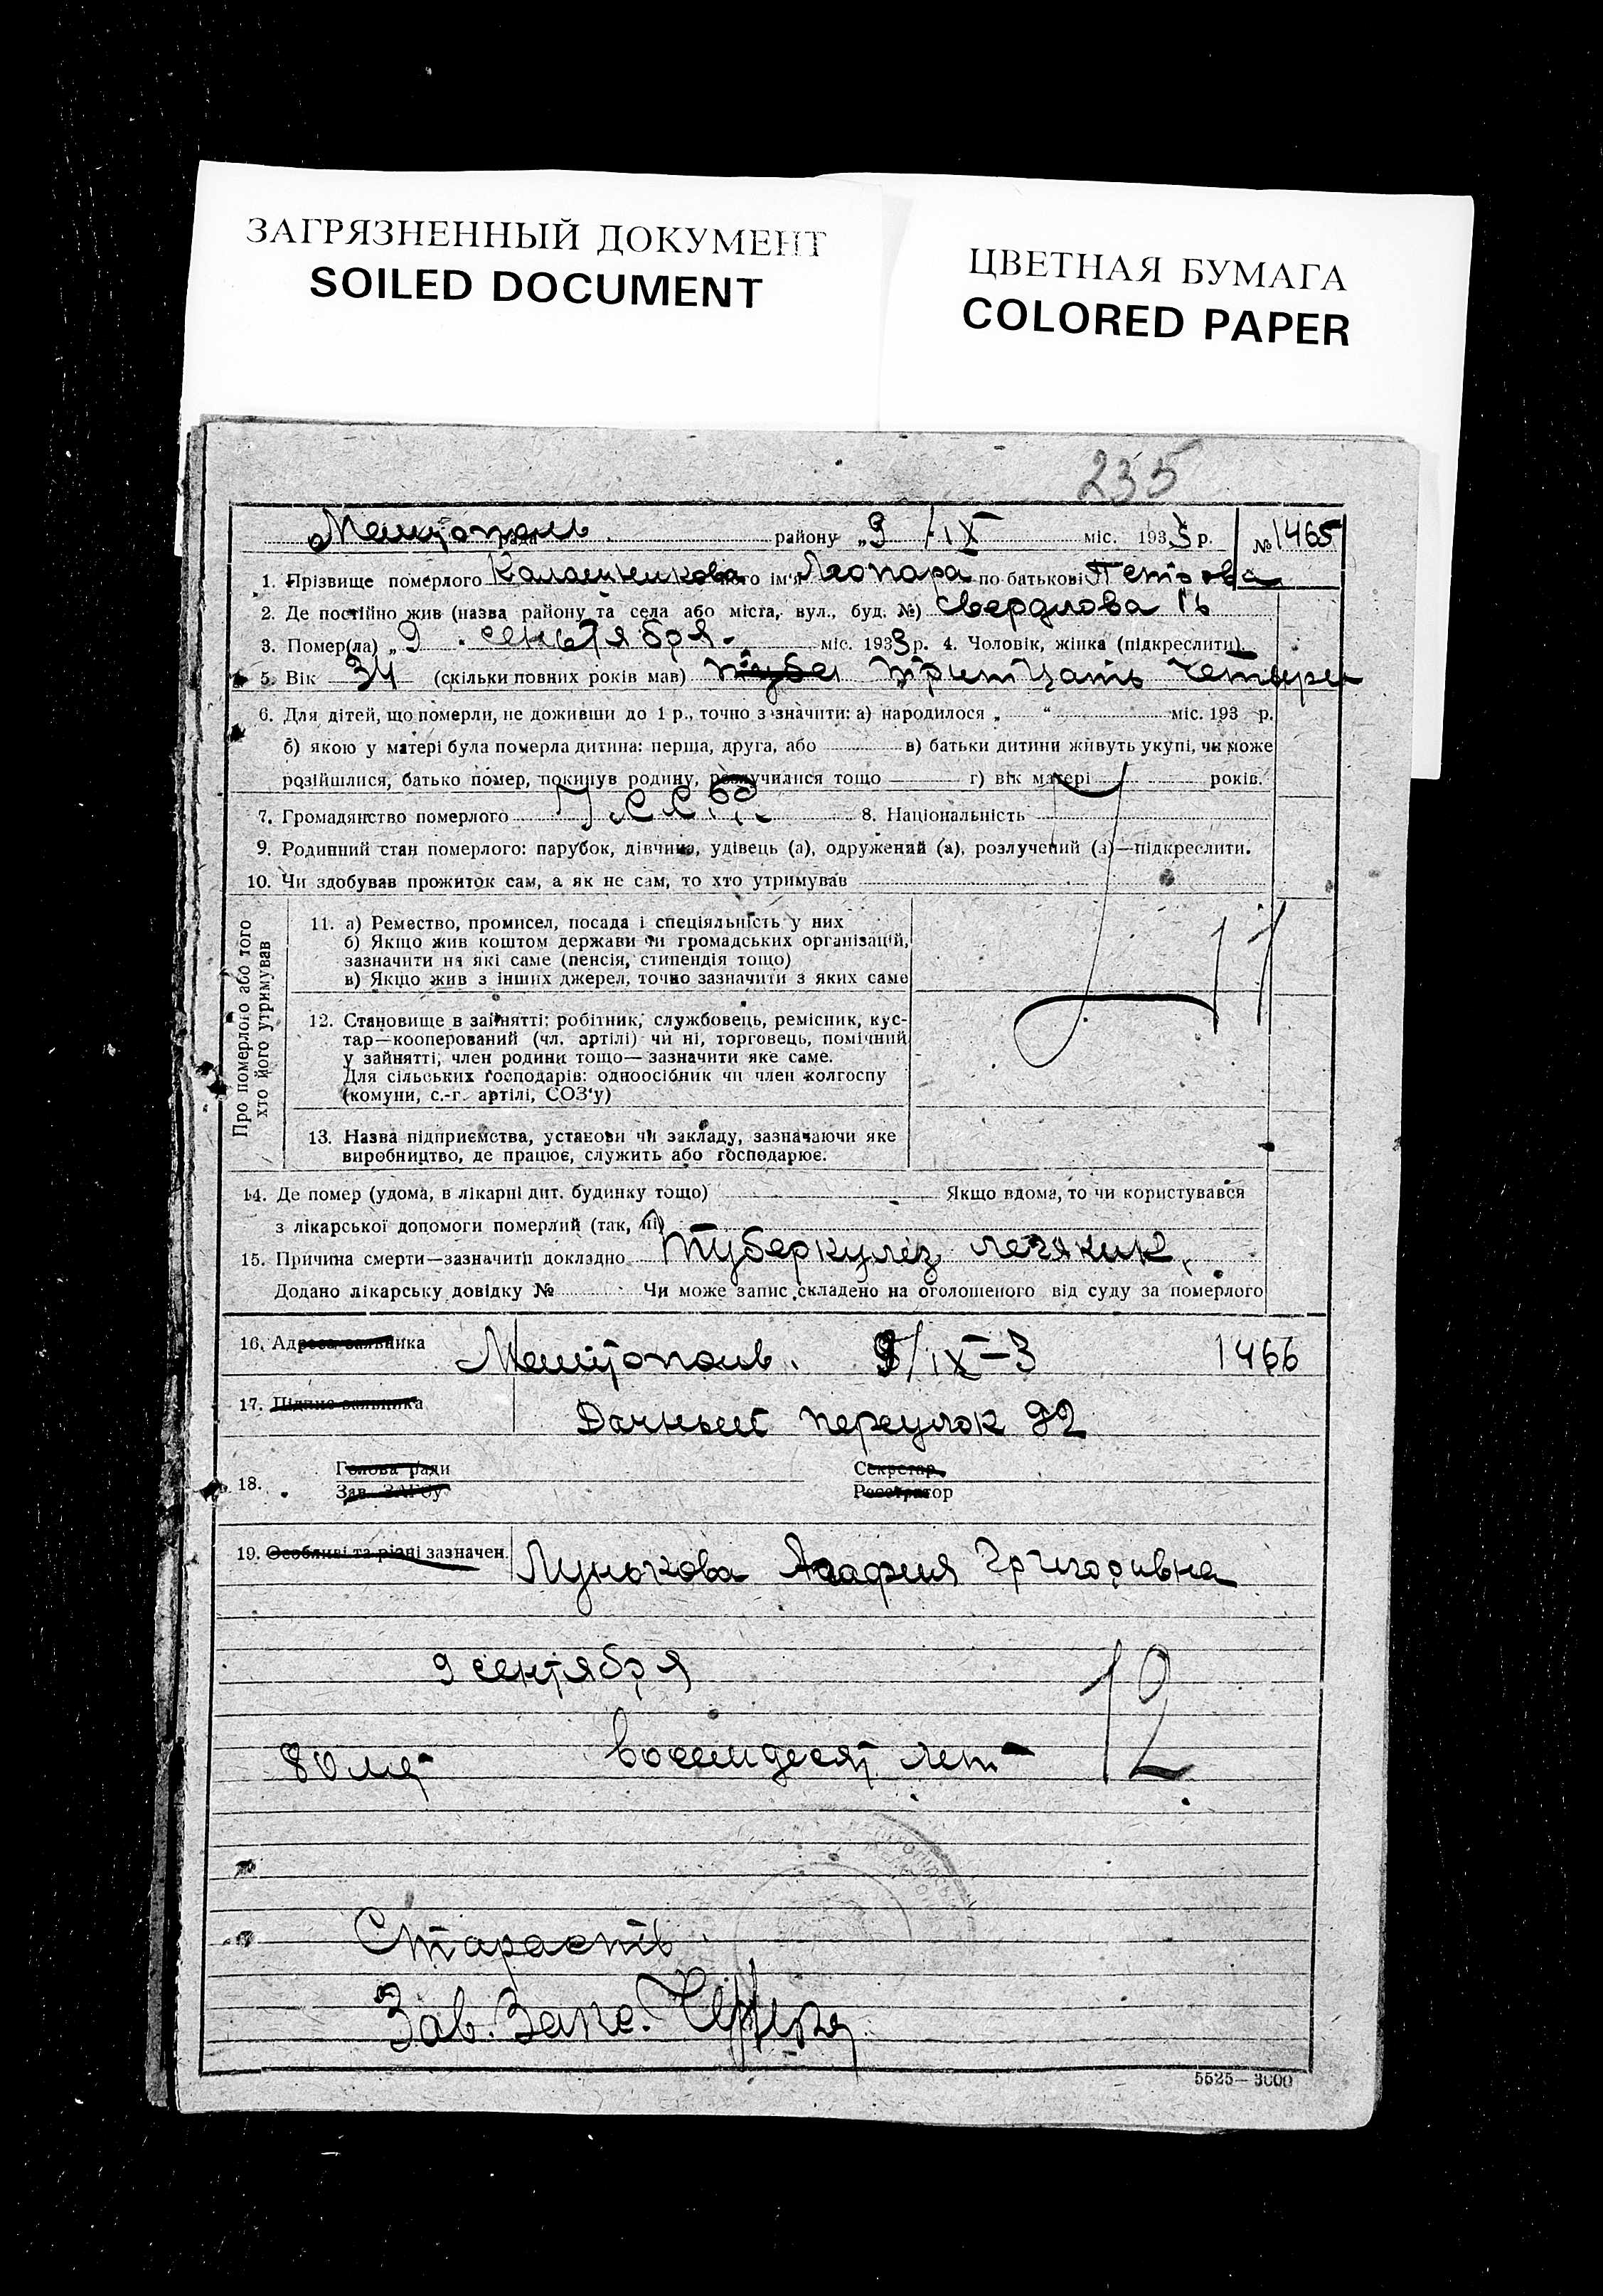 ЗАГРЯЗНЕННЫЙ ДОКУМЕНТ
SOILED DOCUMENT
ЦВЕТНАЯ БУМАГА
COLORED PAPER
235
Мелитополь району „9 /IX міс. 1933 р. № 1465
1. Прізвище померлого Калашникова його ім'я по батькові Петровa
2. Де постійно жив (назва району та села або міста, вул., буд. №) Свердлова 16
3. Помер(ла) „9 сентября міс. 1933 р. 4. Чоловік, жінка (підкреслити).
5. Вік 34 (скільки повних років мав) тритцать четыре
6. Для дітей, що померли, не доживши до 1 р., точно зазначити: а) народилося „ “ міс. 193 р.
б) якою у матері була померла дитина: перша, друга, або в) батьки дитини живуть укупі, чи може
розійшлися, батько помер, покинув родину, розлучилися тощо г) вік матері років.
7. Громадянство померлого УССР 8. Національність
9. Родинний стан померлого: парубок, дівчина, удівець (а), одружений (а), розлучений (а)—підкреслити.
10. Чи здобував прожиток сам, а як не сам, то хто утримував
Про померлого або того
хто його утримував
11. а) Ремество, промисел, посада і спеціяльність у них
б) Якщо жив коштом держави чи громадських організацій,
зазначити на які саме (пенсія, стипендія тощо)
в) Якщо жив з інших джерел, точно зазначити з яких саме
11
12. Становище в зайнятті: робітник, службовець, ремісник, кус-
тар—кооперований (чл. артілі) чи ні, торговець, помічний
у зайнятті, член родини тощо—зазначити яке саме.
Для сільських господарів: одноосібник чи член колгоспу
(комуни, с.-г. артілі, СОЗ'у)
13. Назва підприємства, установи чи закладу, зазначаючи яке
виробництво, де працює, служить або господарює.
14. Де помер (удома, в лікарні дит. будинку тощо) Якщо вдома, то чи користувався
з лікарської допомоги померлий (так, ні)
15. Причина смерти—зазначити докладно Туберкуліз легяких
Додано лікарську довідку № Чи може запис складено на оголошеного від суду за померлого
16. Адреса заявника Мелитополь. 9/IX-3 1466
17. Підпис заявника Дачный переулок 92
18. Голова ради Секретар
Зав. ЗАГСу Реєстратор
19. Особливі та різні зазначен. Лунькова Агафия Григоривна
9 сентября
12
80 лет восемдесят лет
Старасть
Зав. Загс.
5525—3000